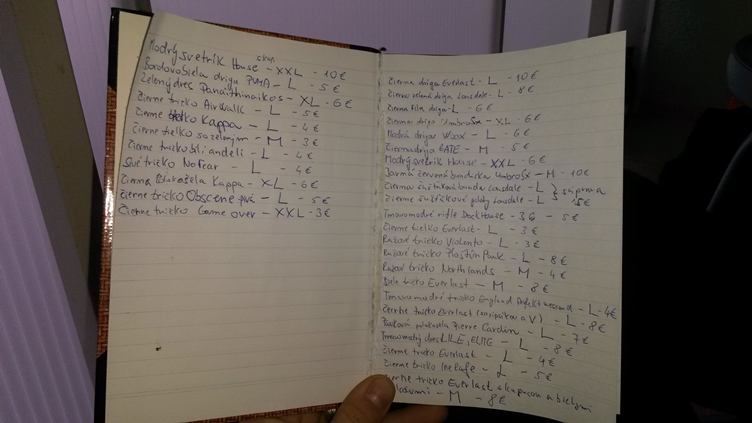 Modrý svetrík House - XXL - 10€
Bordovobiela driga PUMA - L - 5€
Zelený dres Panathinaikos - XL - 6€
Čierne tričko AirWalk - L - 5€
Čierne tielko Kappa - L - 4€
Čierne tielko so zeleným - M - 3€
Čierne tričko bili andeli - L - 4€
Sivé tričko NoFear - L - 4€
Čierna Kappa - XL - 6€
Čierne tričko Obscene - L - 5€
Čierne tričko Game over - XXL - 3€
Čierna driga Everlast - L - 10€
Čierno zelená driga Lonsdale - L - 8€
Čierna Fila driga - L - 6€
Čierna driga Umbro - XL - 6€
Modrá driga - L - 6€
Čierna driga - M - 5€
Modrý svetrík House - XXL 6€
červená bundička Umbro - M - 10€
Čierna šuštiaková bunda Lonsdale - L
Čierne šuštiakové Lonsdale - L 15€
Tmavomodré rifle DockHouse - 36 - 5€
Čierne tielko Everlast - L - 3€
Ružové tričko Violento - L - 3€
Ružové tričko Punk - L - 8€
Ružové tričko Northlands - M - 4€
Biele tričko Everlast - M - 8€
Tmavomodré tričko England - L - 4€
Čierne tričko Everlast - L - 8€
Pierre Cardin - L - 7€
Tmavomodrý dres NIKE, - L - 8€
Čierne tričko Everlast - L - 4€
Čierne tričko - L - 5€
Čierne tričko Everlast s kapucou a bielymi
- M - 8€